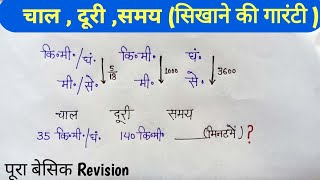 चाल , दूरी ,समय (सिखाने की गारंटी )
कि॰मी॰/घं॰ कि॰मी॰ घं॰
5/18 1000 3600
मी॰/से॰ मी॰ से॰
चाल दूरी समय
35 कि॰मी॰/घं॰ 140 कि॰मी॰ ____(मिनटमें) ?
पूरा बेसिक Revision